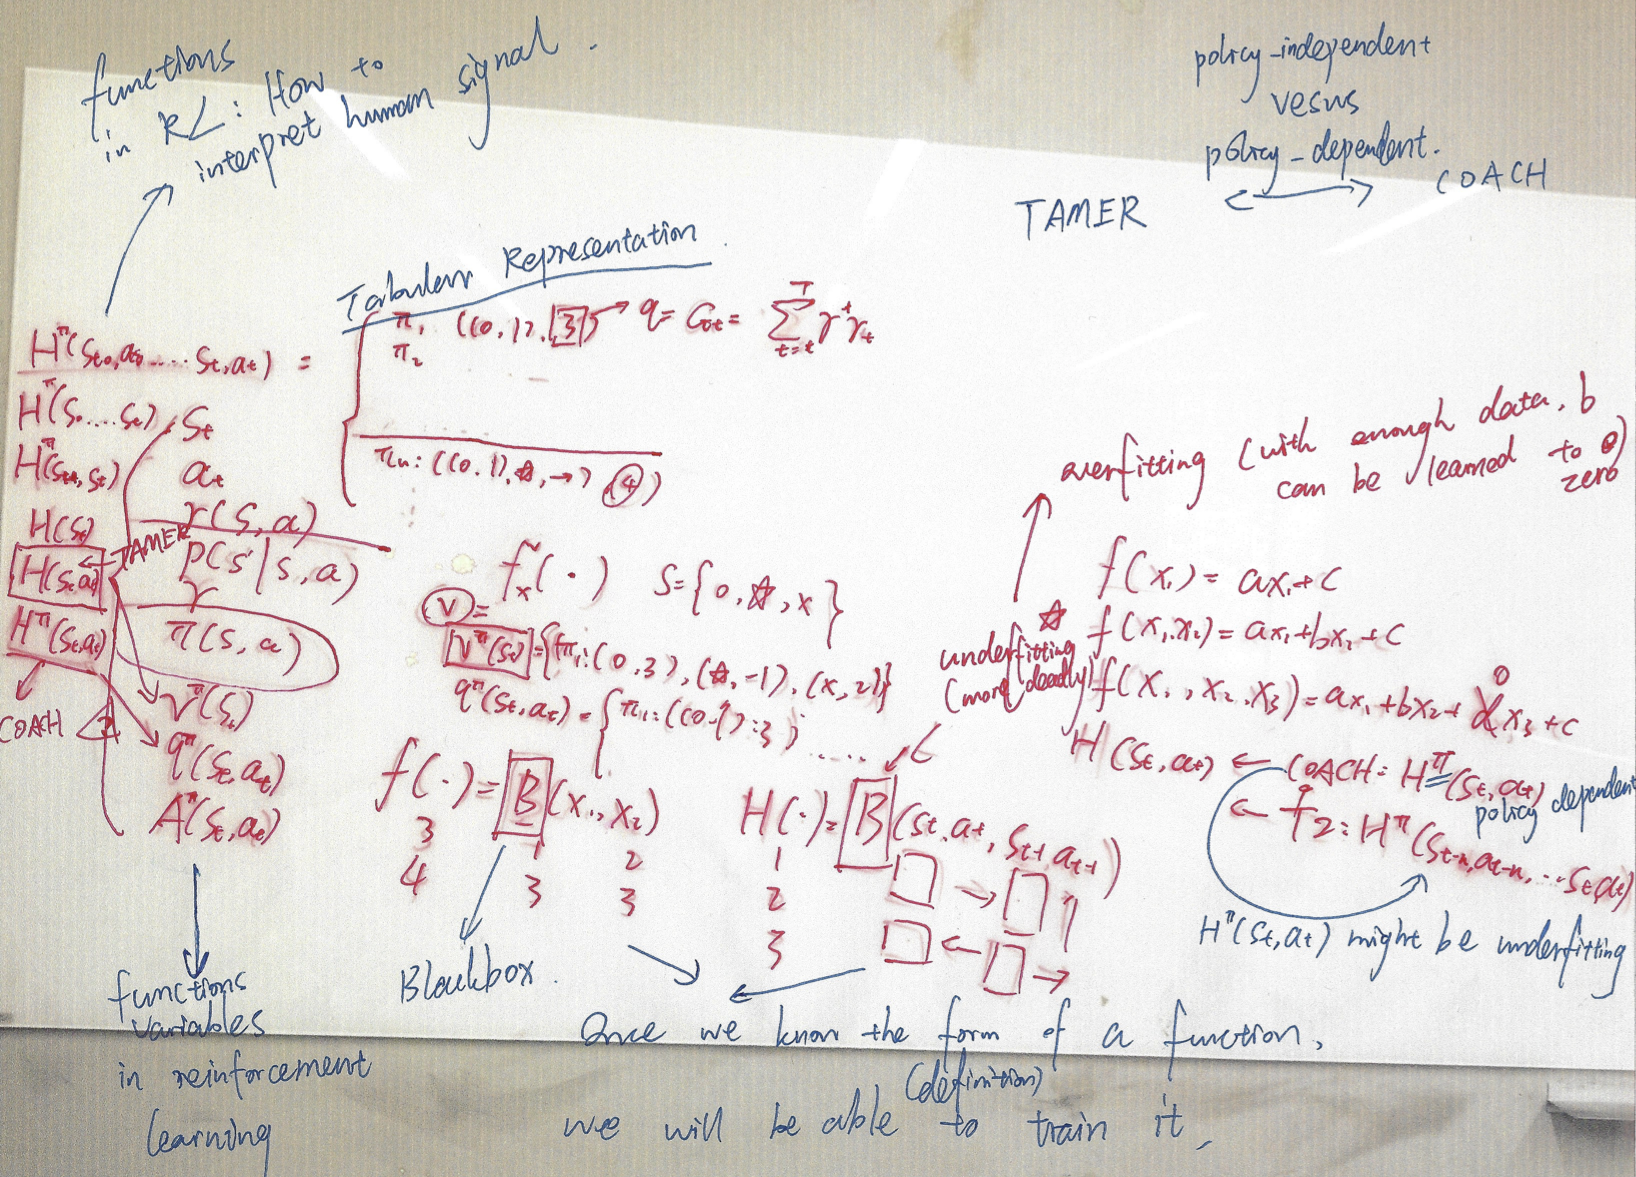 functions
in RL: How to
interpret human signal.
policy-independent
vesus
policy-dependent.
TAMER
COACH
Tabular Representation.
π₁ ((0, 1), 3) → q = G = Σ γᵗrₜ
π₂
πₙ: ((0,1), ☆, →) 4)
H^π(sₜ₀,aₜ₀,....sₜ,aₜ) =
H^π(s....sₜ)
H(sₜ)
H(sₜ,aₜ)
H^π(sₜ,aₜ)
TAMER
COACH
sₜ
aₜ
r(s,a)
p(s'|s,a)
γ
π(s,a)
v^π(sₜ)
q^π(sₜ,aₜ)
A^π(sₜ,aₜ)
functions
variables
in reinforcement
learning
fₓ(·) S={0,☆,x}
V =
V^π(sₜ) = {π₁:(0,3),(☆,-1),(x,2)}
q^π(sₜ,aₜ) = {π₁:((0-1):3) .....
f(·)=B(x₁,x₂)
3 1 2
4 3 3
Blackbox.
H(·)=B(sₜ,aₜ,sₜ₊₁,aₜ₊₁)
1
2
3
overfitting (with enough data, b
can be learned to 0)
zero
underfitting
(more deadly)
f(x₁)=ax₁+c
☆ f(x₁,x₂)=ax₁+bx₂+c
f(x₁,x₂,x₃)=ax₁+bx₂+dx₃+c
0
H(sₜ,aₜ) ← COACH: H^π(sₜ,aₜ)
policy dependent
← f2: H^π(sₜ₋ₙ,aₜ₋ₙ,...sₜ,aₜ)
H^π(sₜ,aₜ) might be underfitting
Once we know the form of a function,
(definition)
we will be able to train it,